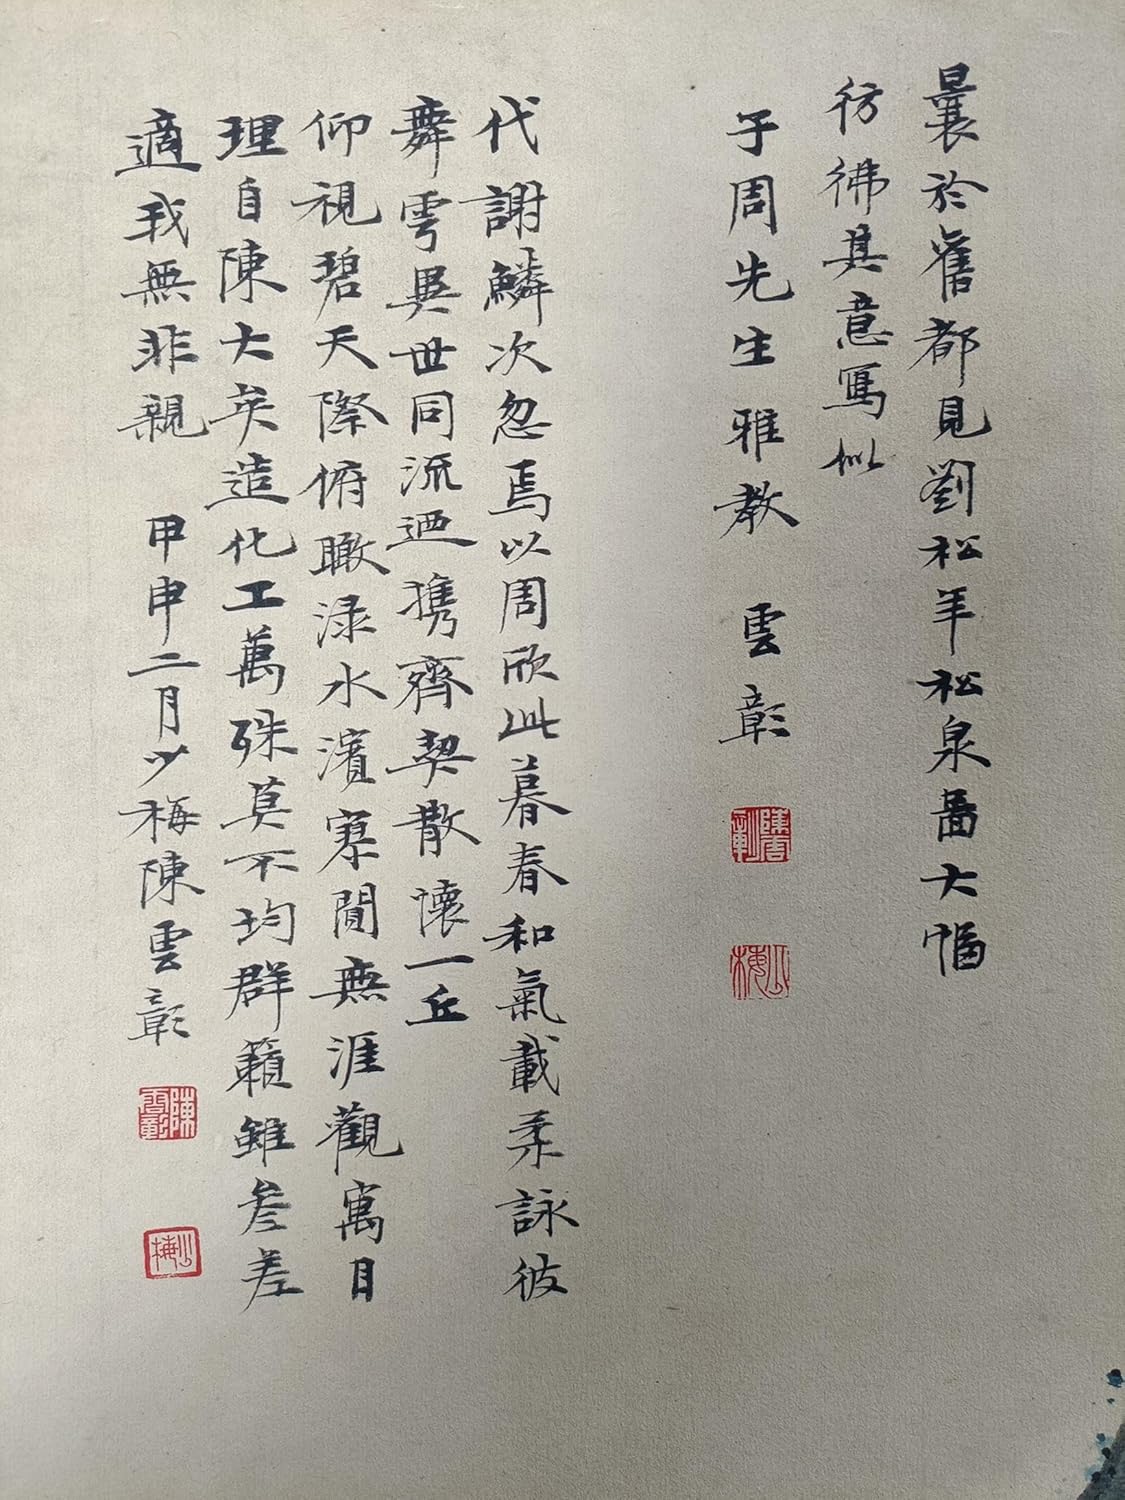 曩於舊都見劉松年松泉圖大幅
彷彿其意寫似
子周先生雅教 雲彰
陳雲彰
少梅
代謝鱗次忽焉以周欣此暮春和氣載柔詠彼
舞雩異世同流迺携齊契散懷一丘
仰視碧天際俯瞰淥水濱寥閴無涯觀寓目
理自陳大矣造化工萬殊莫不均群籟雖參差
適我無非親 甲申二月少梅陳雲彰
陳雲彰
少梅